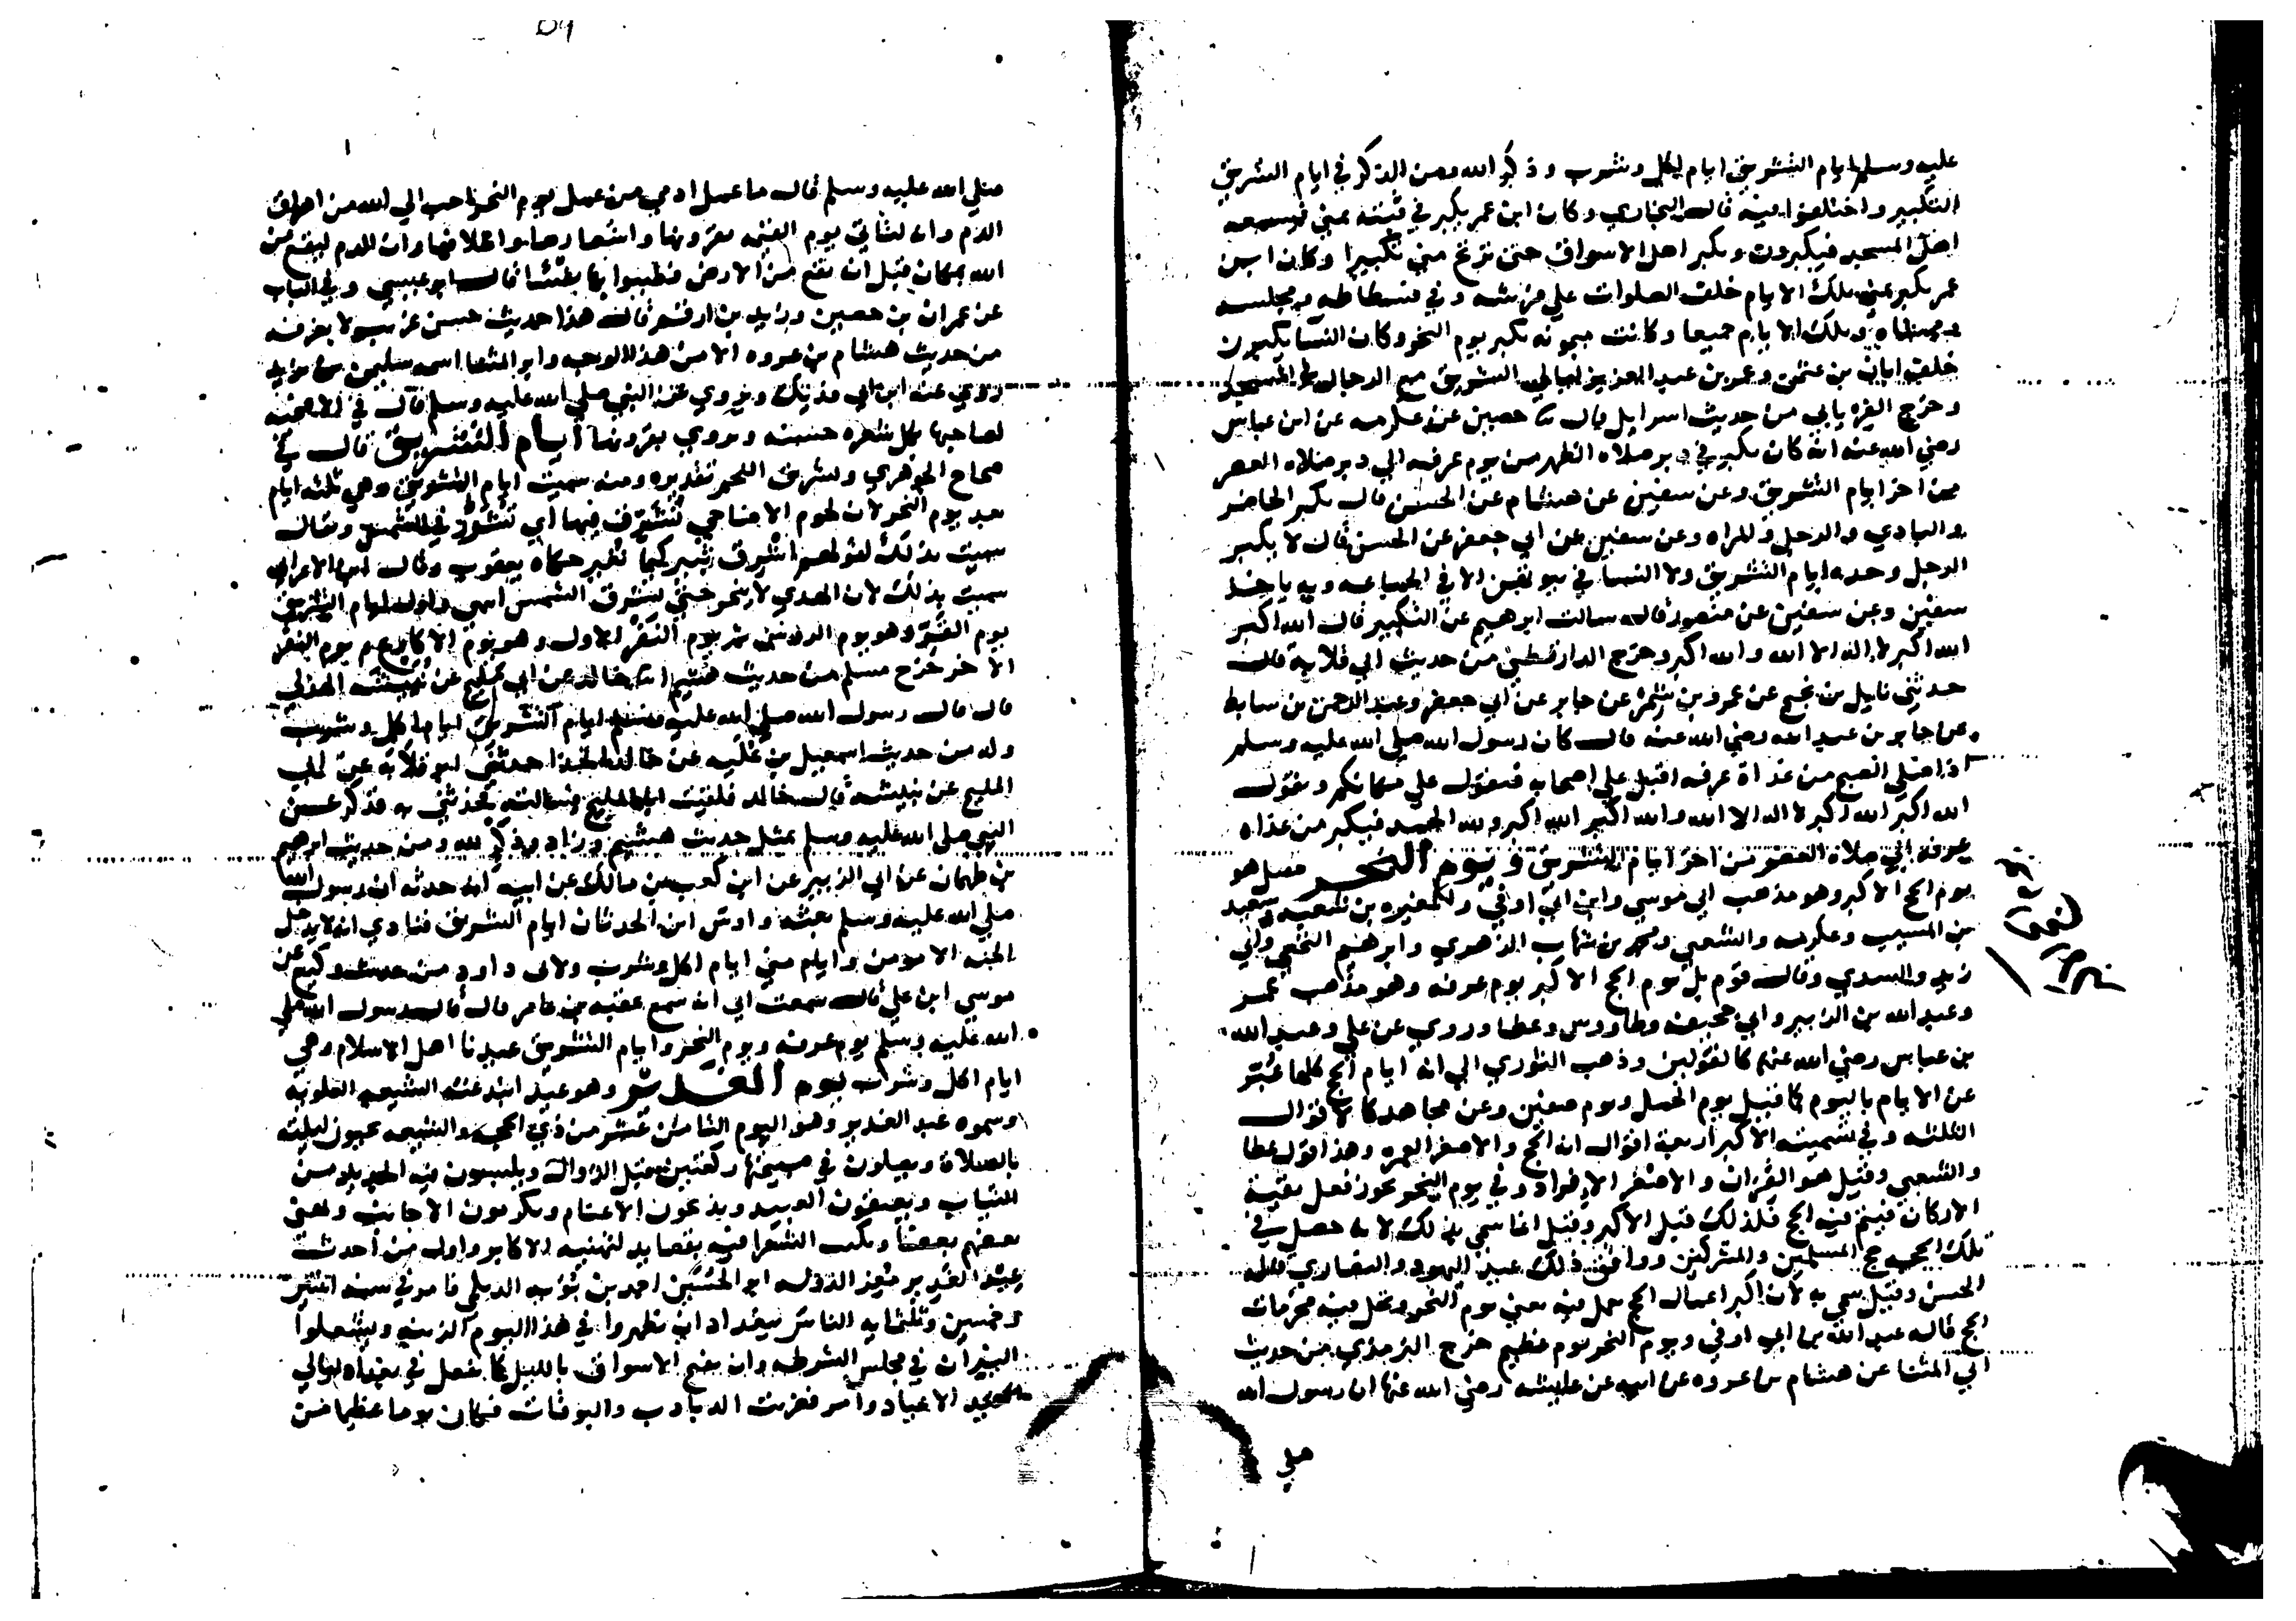 عليه وسلم ايام التشريق ايام اكل وشرب وذكر الله ومن الذكر في ايام التشريق
التكبير واختلفوا فيه قال البخاري وكان ابن عمر يكبر في قبته بمنى فيسمعه
اهل المسجد فيكبرون ويكبر اهل الاسواق حتى ترتج منى تكبيرا وكان ابن
عمر يكبر بمنى تلك الايام خلف الصلوات على فرشه وفي فسطاطه ومجلسه
وممشاه وتلك الايام جميعا وكانت ميمونه تكبر يوم النحر وكان النسا يكبرون
خلف ابان بن عثمن وعمر بن عبد العزيز ليالي التشريق مع الرجال في المسجد
وخرج الفريابي من حديث اسرايل قال حصين عن عكرمه عن ابن عباس
رضي الله عنه انه كان يكبر في دبر صلاة الظهر من يوم عرفه الى دبر صلاة العصر
من اخر ايام التشريق وعن سفين عن هشام عن الحسن قال يكبر الحاضر
والبادي والرجل والمراه وعن سفين عن ابي جعفر عن الحسن قال لا يكبر
الرجل وحده ايام التشريق ولا النسا في بيوتهن الا في الجماعه وبه ياخذ
سفين وعن سفين عن منصور قال سالت ابرهيم عن التكبير قال الله اكبر
الله اكبر لا اله الا الله والله اكبر وخرج الدارقطني من حديث ابي قلابة قال
حدثني نايل بن نجيح عن عمرو بن شمر عن جابر عن ابي جعفر وعبد الرحمن بن سابط
عن جابر بن عبد الله رضي الله عنه قال كان رسول الله صلى الله عليه وسلم
اذا صلى الصبح من غداة عرفه اقبل على اصحابه فيقول على مكانكم ويقول
الله اكبر الله اكبر لا اله الا الله والله اكبر الله اكبر ولله الحمد فيكبر من غداه
عرفه الى صلاة العصر من اخر ايام التشريق ويوم النحر فصل هو
يوم الحج الاكبر وهو مذهب ابي موسي وابن ابي اوفي والمغيره بن شعبه وسعيد
بن المسيب وعكرمه والشعبي ومحمد بن شهاب الزهري وابرهيم النخعي وابي
زيد والسدي وقال قوم بل يوم الحج الاكبر يوم عرفه وهو مذهب عمر
وعبد الله بن الزبير وابي جحيفه وطاووس وعطا وروي عن علي وعبد الله
بن عباس رضي الله عنهم كالقولين وذهب الثوري الى انه ايام الحج كلها عبر
عن الايام باليوم كما قيل يوم الجمل ويوم صفين وعن مجاهد كالاقوال
الثلثه وفي تسميته الاكبر اربعة اقوال ان الحج والاصغر العمره وهذا قول عطا
والشعبي وقيل هو القران والاصغر الافراد وفي يوم النحر يجوز فعل بقية
الاركان فيتم فيه الحج فلذلك قيل الاكبر وقيل انما سمي بذلك لانه حصل في
تلك الحجه حج المسلمين والمشركين ووافق ذلك عيد اليهود والنصاري قاله
الحسن وقيل سمي به لان اكبر اعمال الحج يعمل فيه يعني يوم النحر وتحل فيه محرمات
الحج قاله عبد الله بن ابي اوفي ويوم النحر يوم عظيم خرج الترمذي من حديث
ابي المثنا عن هشام بن عروه عن ابيه عن عايشه رضي الله عنها ان رسول الله
صلى
صلى الله عليه وسلم قال ما عمل ادمي من عمل يوم النحر احب الى الله من اهراق
الدم وانه لتاتي يوم القيمه بقرونها واشعارها واظلافها وان الدم ليقع من
الله بمكان قبل ان يقع من الارض فطيبوا بها نفسا قال ابو عيسي وفي الباب
عن عمران بن حصين وزيد بن ارقم قال هذا حديث حسن غريب ولا نعرفه
من حديث هشام بن عروه الا من هذا الوجه وابو المثنا اسمه سليمن بن يزيد
روي عنه ابن ابي فديك ويروي عن النبي صلى الله عليه وسلم قال في الاضحيه
لصاحبها بكل شعره حسنه ويروي بقرونها ايام التشريق قال في
صحاح الجوهري وتشريق اللحم تقديده ومنه سميت ايام التشريق وهي ثلثة ايام
بعد يوم النحر لان لحوم الاضاحي تشرق فيها اي تشرر في الشمس ويقال
سميت بذلك لقولهم اشرق ثبير كيما نغير حكاه يعقوب وقال ابن الاعرابي
سميت بذلك لان الهدي لا ينحر حتى تشرق الشمس انتهى واول ايام التشريق
يوم القر وهو يوم الروس ثم يوم النفر الاول وهو يوم الاكارع ثم يوم النفر
الاخر خرج مسلم من حديث هشيم خالد عن ابي المليح عن نبيشه الهذلي
قال قال رسول الله صلى الله عليه وسلم ايام التشريق ايام اكل وشرب
وله من حديث اسمعيل بن عليه عن خالد الحذا حدثني ابو قلابه عن ابي
المليح عن نبيشه قال خالد فلقيت ابا المليح فسالته فحدثني به فذكر عن
النبي صلى الله عليه وسلم بمثل حديث هشيم وزاد وذكر لله ومن حديث ابرهيم
بن طهمان عن ابي الزبير عن ابن كعب بن مالك عن ابيه انه حدثه ان رسول الله
صلى الله عليه وسلم بعثه واوس ابن الحدثان ايام التشريق فنادي انه لا يدخل
الجنه الا مومن وايام منى ايام اكل وشرب ولابي داود من حديث وكيع عن
موسي ابن علي قال سمعت ابي انه سمع عقبه بن عامر قال قال رسول الله صلى
الله عليه وسلم يوم عرفه ويوم النحر وايام التشريق عيدنا اهل الاسلام وهي
ايام اكل وشرب يوم الغدير وهو عيد ابتدعته الشيعه العلويه
وسموه عيد الغدير وهو اليوم الثامن عشر من ذي الحجه والشيعه يحيون ليلته
بالصلاة ويصلون في صبيحتها ركعتين قبل الزوال ويلبسون فيه الجديد من
الثياب ويعتقون العبيد ويذبحون الاغنام ويكرمون الاجانب ويهني
بعضهم بعضا وتكتب الشعرا فيه بقصايد لتهنيه الاكابر واول من احدث
عيد الغدير معز الدوله ابو الحسين احمد بن بويه الديلمي فامر في سنه اثنتين
وخمسين وثلثمايه الناس ببغداد ان يظهروا في هذا اليوم الزينه ويشعلوا
النيران في مجلس الشرطه وان يفتح الاسواق بالليل كما يفعل في بغداد ليالي
الاعياد وامر فضربت الدبادب والبوقات فكان يوما عظيما من